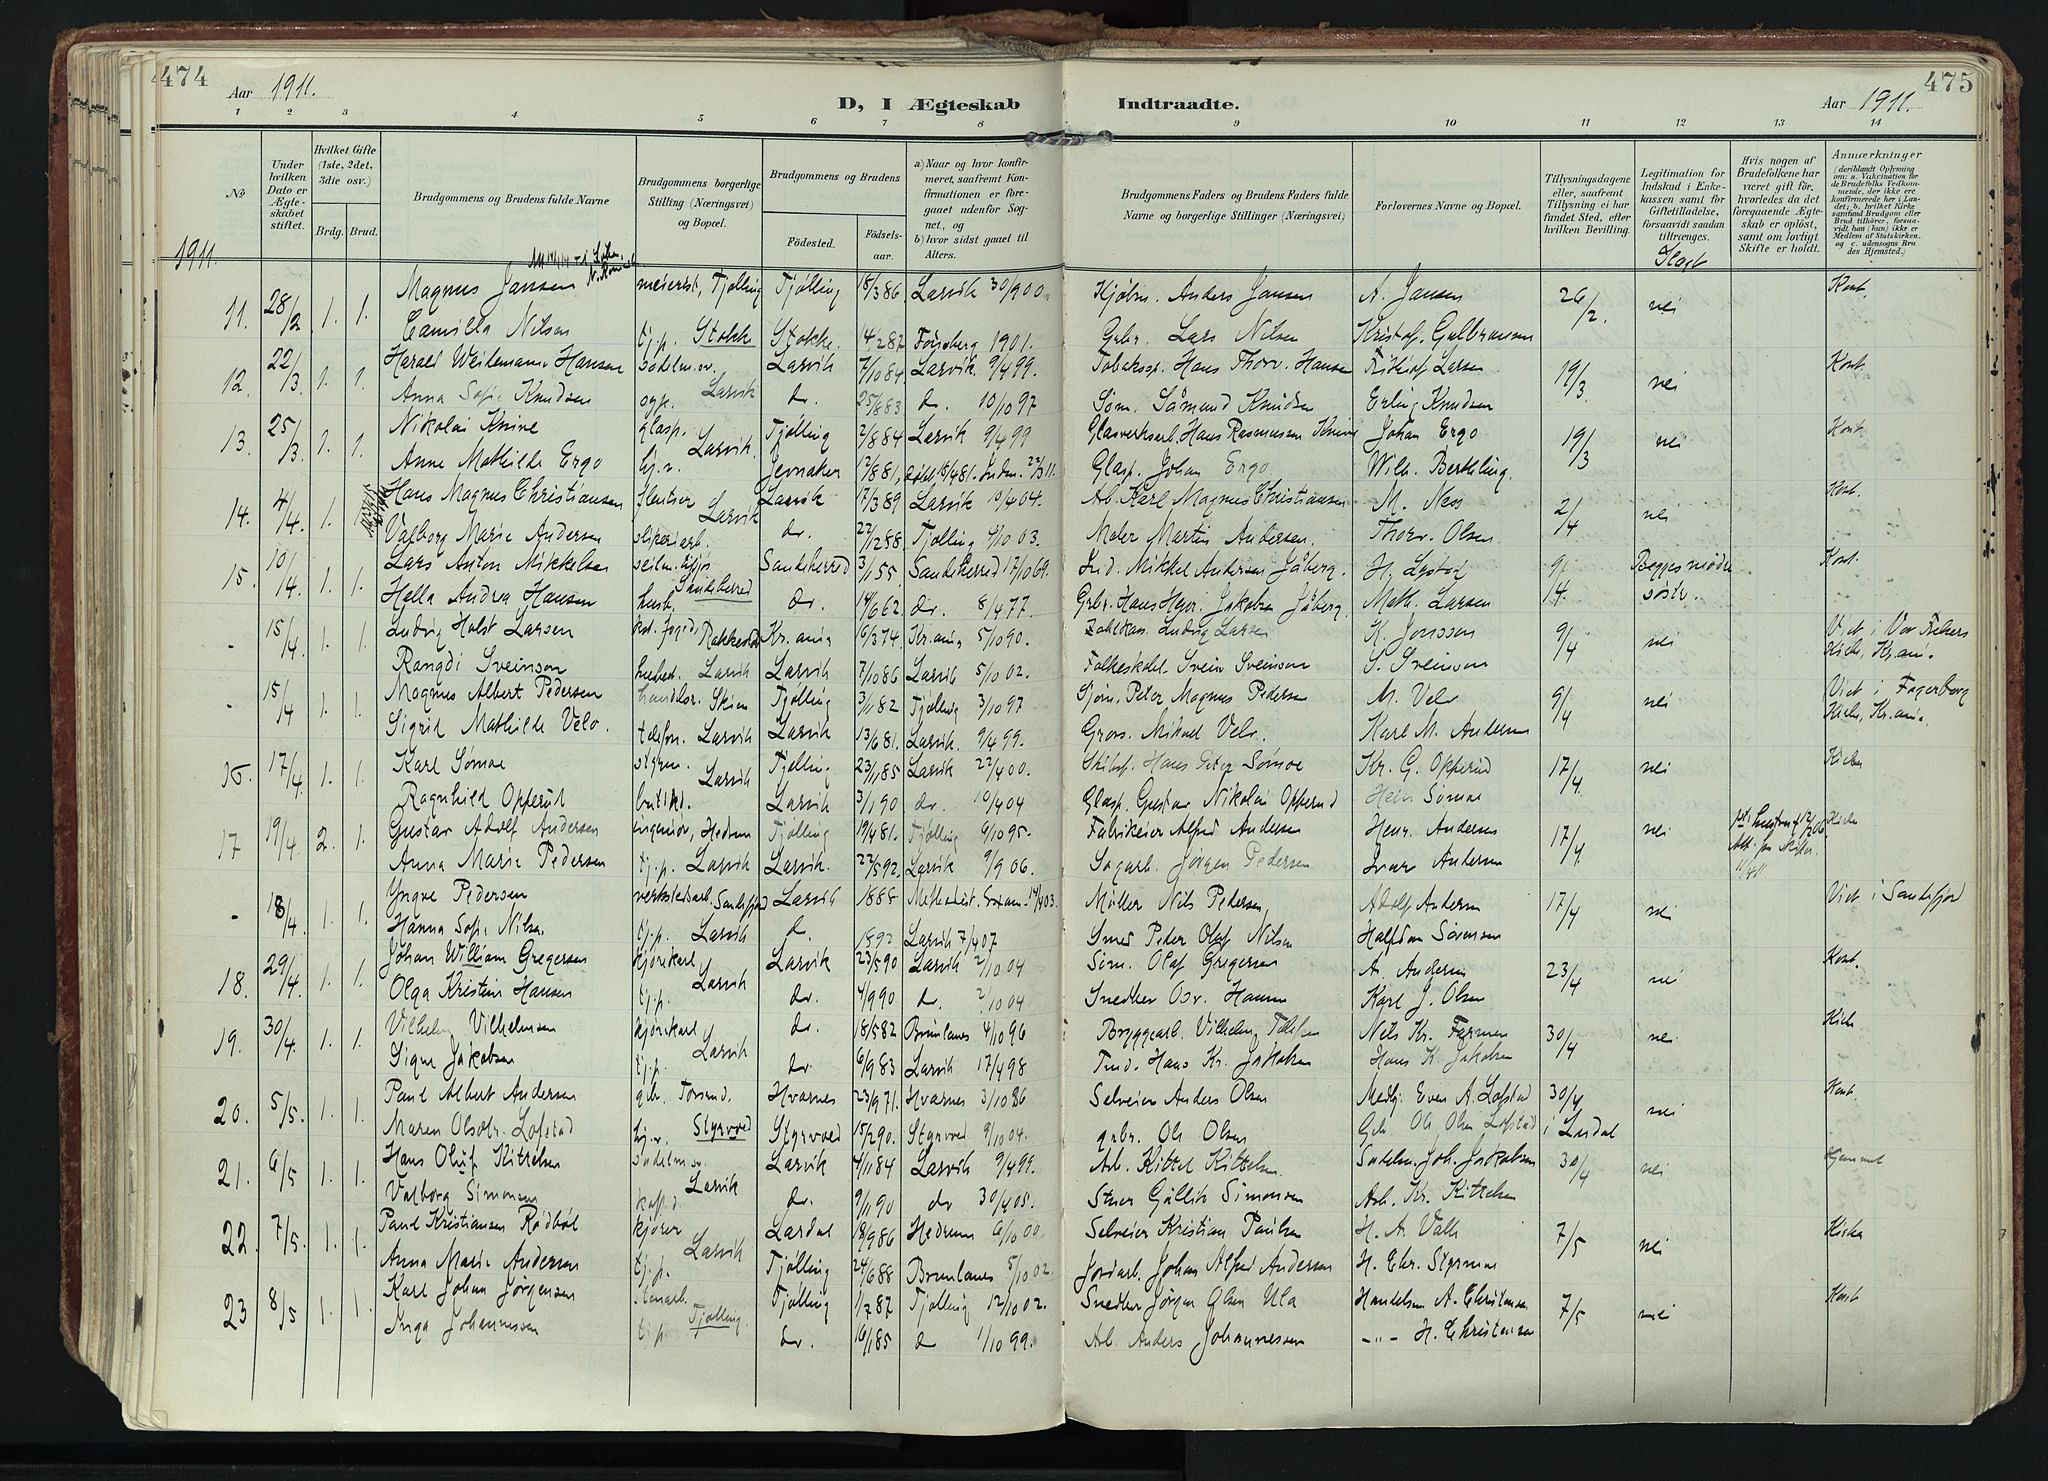 474
Aar 1911.
D, I Ægteskab Indtraadte.
Aar 1911.
475
1 2 3 4 5 6 7 8 9 10 11 12 13 14
No
Under hvilken Dato er Ægteskabet stiftet.
Hvilket Gifte (1ste, 2det, 3die osv.)
Brdg. Brud.
Brudgommens og Brudens fulde Navne
Brudgommens borgerlige Stilling (Næringsvei) og Bopæl.
Brudgommens og Brudens
Födested. Födsels-aar.
a) Naar og hvor konfirmeret, saafremt Konfirmationen er foregaaet udenfor Sognet, og
b) hvor sidst gaaet til Alters.
Brudgommens Faders og Brudens Faders fulde Navne og borgerlige Stillinger (Næringsvei)
Forlovernes Navne og Bopæl.
Tillysningsdagene eller, saafremt Tillysning ei har fundet Sted, efter hvilken Bevilling.
Legitimation for Indskud i Enkekassen samt for Giftetilladelse, forsaavidt saadan tiltrænges.
Hvis nogen af Brudefolkene har været gift för, hvorledes da det foregaaende Ægteskab er oplöst, samt om lovligt Skifte er holdt.
Anmærkninger
(deriblandt Oplysning om: a. Vaccination for de Brudefolks Vedkommende, der ikke ere konfirmerede her i Landet; b. hvilket Kirkesamfund Brudgom eller Brud tilhörer, forsaavidt han (hun) ikke er Medlem af Statskirken, og c. udensogns Brudes Hjemsted.)
1911.
Slagt
11. 28/2 1. 1. Magnus Jansen meierist, Tjølling Tjølling 18/3 86 Larvik 30/9 00 Kjøbm. Anders Jansen A. Jansen 26/2. nei Kont.
Camilla Nilsen tj.p. Stokke Stokke 4/2 87 1901. Grbr. Lars Nilsen Kristof. Gulbransen
12. 22/3 1. 1. Harald Weidemann Hansen sadelm.sv. Larvik Larvik 7/10 84 Larvik 9/4 99. Tobakssp. Hans Thorv. Hansen Fridtjof Larsen 19/3 nei Kont.
Anna Sofie Knudsen do. 25/8 83 do. 10/10 97 Søm. Knudsen Erling Knudsen
13. 25/3 1. 1. Nikolai Knive glasp. Larvik. Tjølling 2/8 84 Larvik 9/4 99 Glasverksarb. Hans Rasmussen Knive Johan Ergo 19/3 nei Kont.
Anne Mathilde Ergo Jevnaker 17/8 81, Glasp. Johan Ergo Wilh. Berthling
14. 4/4 1. Hans Magnus Christiansen Larvik Larvik 17/3 89 Larvik 10/4 04. Arb. Karl Magnus Christiansen M. Næs 2/4 nei Kont.
Valborg Marie Andersen sliperiarb. do. 22/12 88. Tjølling 4/10 03. Maler Martin Andersen. Thorv. Olsen
15. 10/4 1. 1. Lars Anton Mikkelsen Sandeherred Sandeherred 3/1 55 Sandeherred 17/10 69. Ind. Mikkel Andersen Jåberg. H. Lystad 9/ Begges mødre Kont.
Hella Andrea Hansen husb. do. 14/6 62 do. 8/4 77. Grbr. Hans Henr. Jakobsen Jåberg. Math. Larsen 14. søstr.
- 15/4 1. 1 Ludvig Holst Larsen Rakkestad Kr.ania 16/3 74 Kr.ania 5/10 90. Ludvig Larsen K. Jonssen 9/4 nei Viet i Vor Frelsers
Rangdi Sveinson Larvik Larvik 7/10 86 Larvik 5/10 02. Folkeskol. Svein Sveinson S. Sveinson Kirke, Kr.ania.
- 15/4 1. 1. Magnus Albert Pedersen handler. Skien Tjølling 3/1 82 Tjølling 3/10 97 Sjøm. Peter Magnus Pedersen M. Velo 9/4 nei Viet i Fagerborg
Sigrid Mathilde Velo. telefon. Larvik Larvik 13/6 81. Larvik. 9/4 99. Gross. Mikael Velo. Karl M. Andersen Kirke, Kr.ania.
16. 17/4 1. 1. Karl Sømoe styrm. Larvik Tjølling 23/11 85 Larvik 22/4 00. Skibsf. Hans Peter Sømoe Kr. G. Opperud 17/4 nei Kirken
Ragnhild Opperud butikd. Larvik 3/1 90 do. 10/4 04 Glasp. Gustav Nikolai Opperud Hein Sømoe
17 19/4 2. 1. Gustav Adolf Andersen ingeniør, Hedrum Tjølling 19/4 81. Tjølling 6/10 95. Fabrikeier Alfred Andersen Henr. Andersen 17/4 nei
Anna Marie Pedersen tj.p. Larvik Larvik. 22/5 92. Larvik 9/9 06. Sagarb. Jørgen Pedersen Ivar Andersen
- 18/4 1. 1. Yngve Pedersen verkstedsarb. Sandefjord Larvik 1888 Methodist. Møller Nils Pedersen Adolf Andersen 17/4 nei Viet i Sandefjord
Hanna Sofie Nilsen tj.p. Larvik d. 1892 Larvik 7/4 07 Smed Peter Olaf Nilsen Halfdan Sørensen
18. 29/4 1. 1. Johan William Gregersen kjørekarl Larvik Larvik 23/5 90 Larvik 2/10 04 Søm. Olaf Gregersen A. Andersen 23/4 nei Kont.
Olga Kristine Hansen tj.p. do. 4/9 90 do. 2/10 04 Snedker Osv. Hansen Karl J. Olsen
19. 30/4. 1. 1. Vilhelm Vilhelmsen kjørekarl Larvik do. 18/5 82 Brunlanes 4/10 96 Bryggearb. Vilhelm Nils Kr. Farmen 30/4 nei Kirke
Signe Jakobsen tj.p. do. 6/9 83 Larvik 17/4 98 Hans Kr. Jakobsen Hans K. Jakobsen
20. 5/5. 1. 1. Paul Albert Andersen gbr. Hvarnes 23/9 71. Hvarnes 3/10 86 Selveier Anders Olsen Medhj. Even A. Lofstad 30/4 nei Kont.
Maren Olsdtr. Lofstad Styrvold Styrvold 15/2 90. Styrvold 9/10 04. grbr. Ole Olsen Gbr. Ole Olsen Lofstad i Lardal
21. 6/5 1. 1. Hans Oluf Kittelsen sadelm.sv. Larvik Larvik 4/11 84 Larvik 9/4 99. Arb. Kittel Kittelsen Sadelm. Joh. Jakobsen 30/4 nei Hjemmet
Valborg Simonsen do. 9/11 90 do 30/4 05. Stuer Gullik Simonsen Arb. Kr. Kittelsen
22. 7/5. 1. 1. Paul Kristiansen Rødbøl kjører Larvik Lardal 18/9 86 Hedrum 6/10 00 Selveier Kristian Paulsen H. A. Valle 7/5 nei Kirke
Anna Marie Andersen tj.p. Tjølling 24/6 88 Brunlanes 5/10 02. Jordarb. Johan Alfred Andersen H. Chr. Styrmoe
23 8/5 1. 1. Karl Johan Jørgensen stenarb. Tjølling. Tjølling 1/7 87 Tjølling 12/10 02. Snedker Jørgen Olsen Ula Handelsm. A. Christensen 7/5 nei Kont
Inga Johannessen tj.p do. 16/1 85 d 1/10 99. Arb. Anders Johannessen -"- H. Christensen